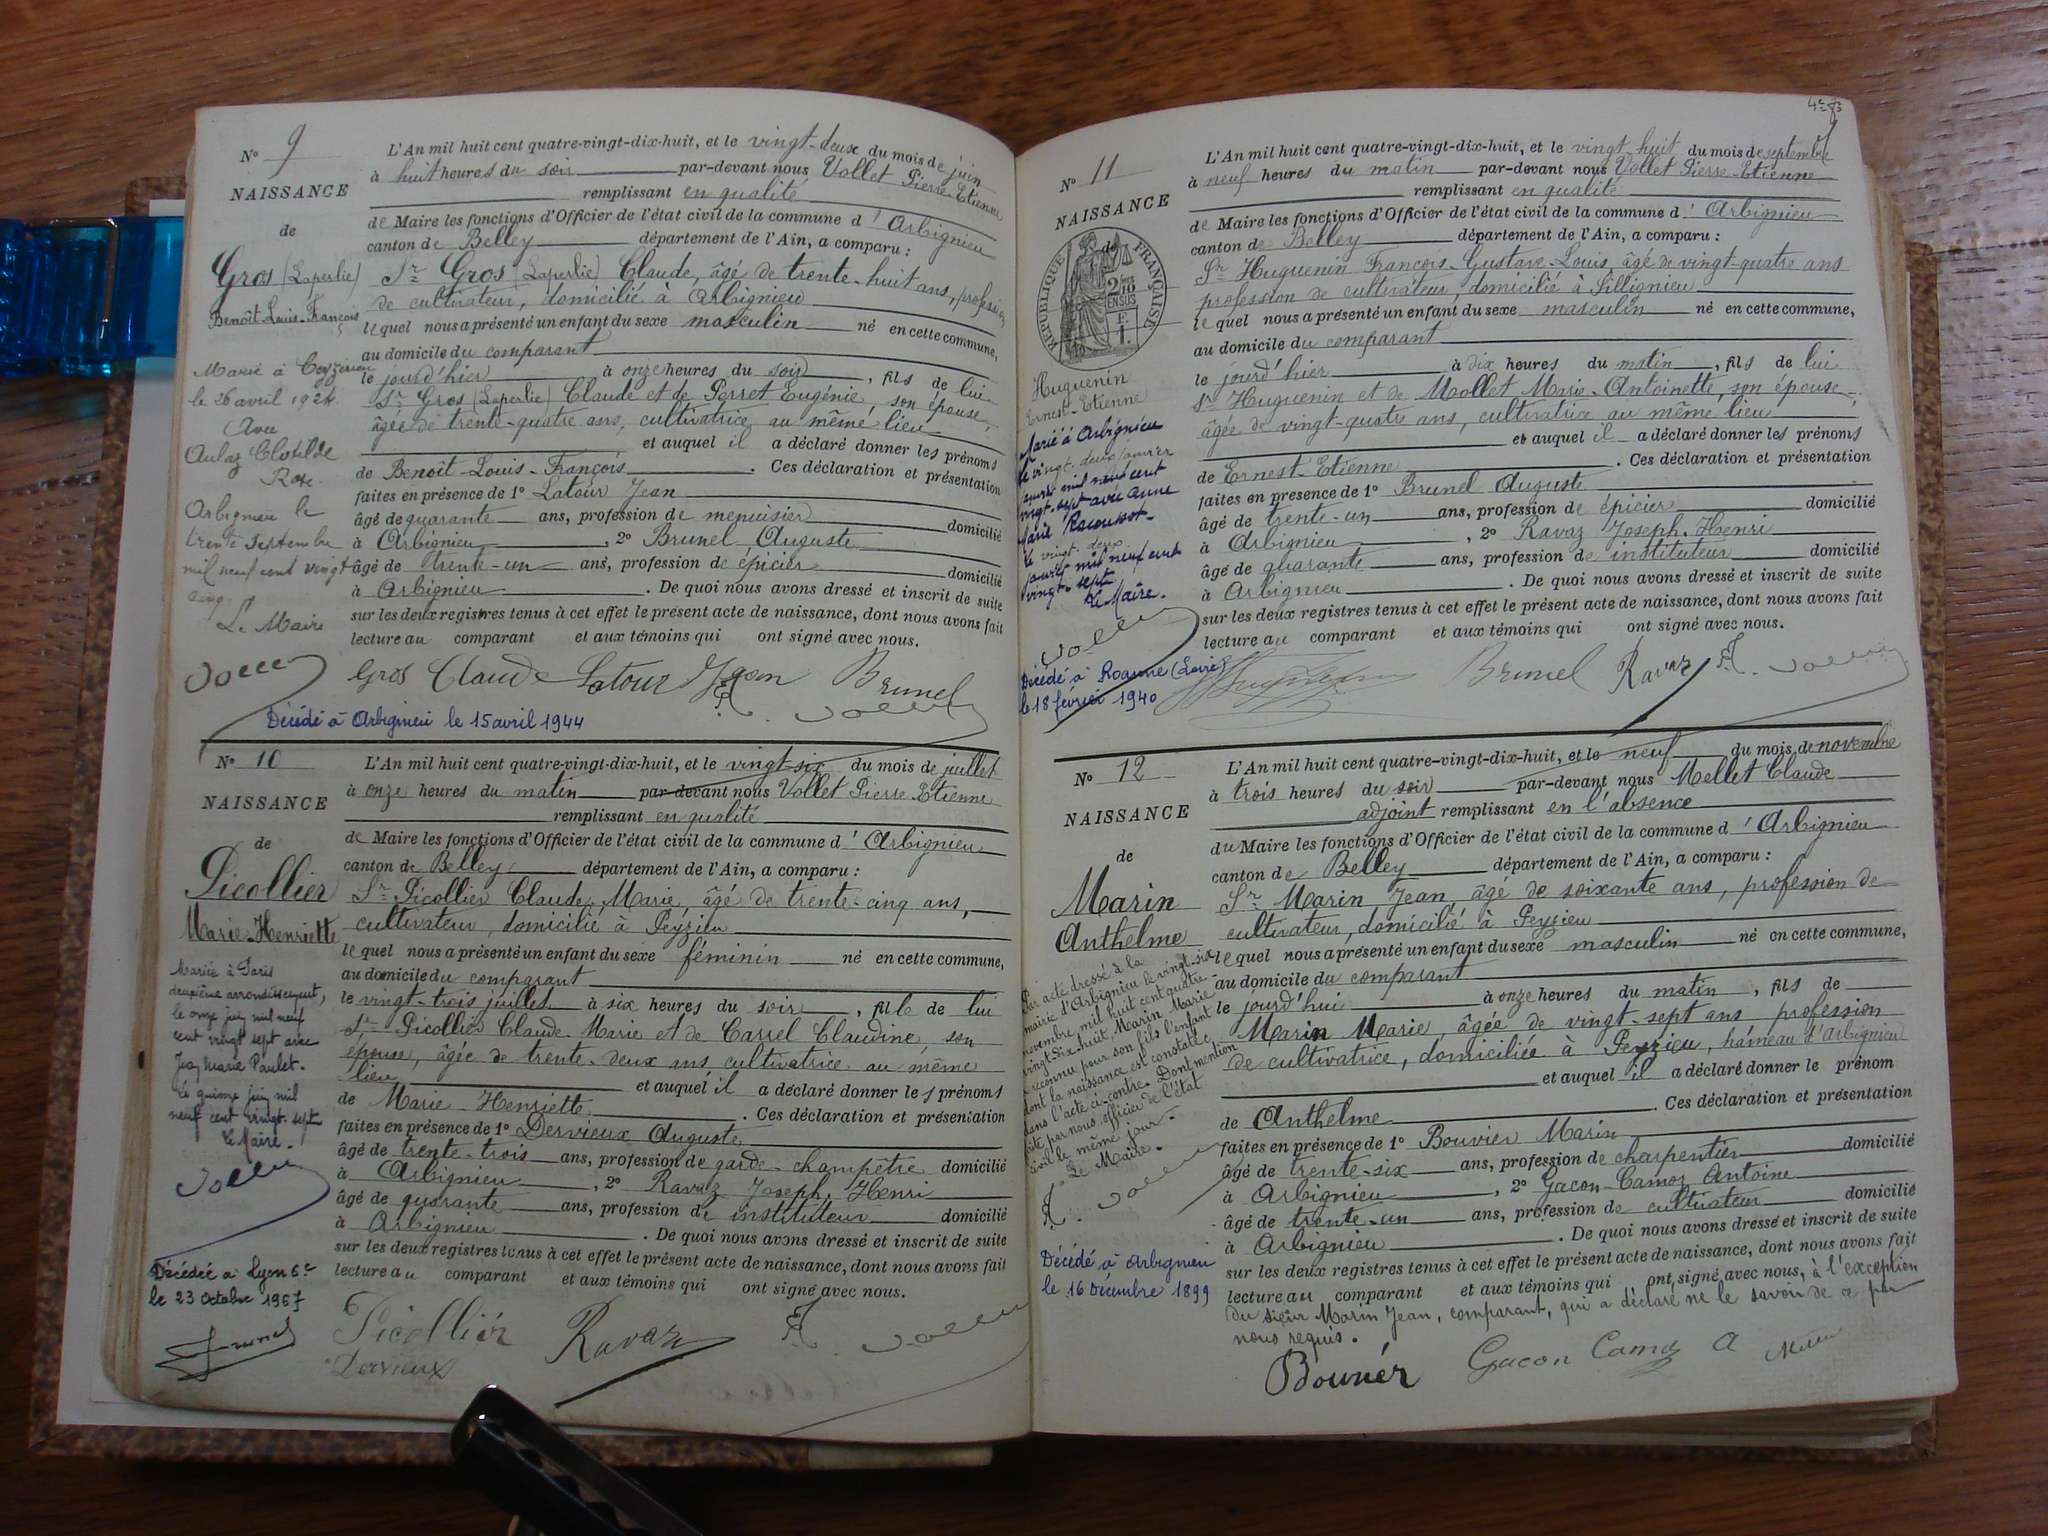 N° 9
NAISSANCE
de
Gros (Laperlie)
Benoît-Louis-François
Marié à Ceyzérieu
le 26 avril 1924
Avec
Aulaz Clotilde
Rose.
Arbignieu le
trente septembre
mil neuf cent vingt
cinq.
Le Maire
L'An mil huit cent quatre-vingt-dix-huit, et le vingt-deux du mois de juin
à huit heures du soir par-devant nous Vollet Pierre-Etienne
remplissant en qualité
de Maire les fonctions d'Officier de l'état civil de la commune d'Arbignieu
canton de Belley département de l'Ain, a comparu :
Sr Gros (Laperlie) Claude, âgé de trente-huit ans, profession
de cultivateur, domicilié à Arbignieu
lequel nous a présenté un enfant du sexe masculin né en cette commune,
au domicile du comparant
le jourd'hier à onze heures du soir, fils de lui
Sr Gros (Laperlie) Claude et de Perret Eugénie, son épouse,
âgée de trente-quatre ans, cultivatrice au même lieu
et auquel il a déclaré donner les prénoms
de Benoît-Louis-François. Ces déclaration et présentation
faites en présence de 1° Latour Jean
âgé de quarante ans, profession de menuisier domicilié
à Arbignieu, 2° Brunel Auguste
âgé de trente-un ans, profession de épicier domicilié
à Arbignieu. De quoi nous avons dressé et inscrit de suite
sur les deux registres tenus à cet effet le présent acte de naissance, dont nous avons fait
lecture au comparant et aux témoins qui ont signé avec nous.
Gros Claude Latour Jean Brunel
Décédé à Arbignieu le 15 avril 1944
N° 10
NAISSANCE
de
Picollier
Marie-Henriette
Mariée à Paris
deuxième arrondissement,
le onze juin mil neuf
cent vingt sept avec
Jean Marie Paulet.
Le quinze juin mil
neuf cent vingt-sept
Le Maire.
Décédée à Lyon 6e
le 23 Octobre 1967
L'An mil huit cent quatre-vingt-dix-huit, et le vingt-six du mois de juillet
à onze heures du matin par-devant nous Vollet Pierre-Etienne
remplissant en qualité
de Maire les fonctions d'Officier de l'état civil de la commune d'Arbignieu
canton de Belley département de l'Ain, a comparu :
Sr Picollier Claude, Marie, âgé de trente-cinq ans,
cultivateur, domicilié à Peyzieu
lequel nous a présenté un enfant du sexe féminin né en cette commune,
au domicile du comparant
le vingt-trois juillet à six heures du soir, fille de lui
Sr Picollier Claude-Marie et de Carrel Claudine, son
épouse, âgée de trente-deux ans, cultivatrice au même
lieu et auquel il a déclaré donner les prénoms
de Marie-Henriette. Ces déclaration et présentation
faites en présence de 1° Dervieux Auguste
âgé de trente-trois ans, profession de garde-champêtre domicilié
à Arbignieu, 2° Ravaz Joseph, Henri
âgé de quarante ans, profession de instituteur domicilié
à Arbignieu. De quoi nous avons dressé et inscrit de suite
sur les deux registres tenus à cet effet le présent acte de naissance, dont nous avons fait
lecture au comparant et aux témoins qui ont signé avec nous.
Picollier Ravaz
Dervieux
N° 11
NAISSANCE
de
RÉPUBLIQUE FRANÇAISE
Huguenin
Ernest-Etienne
Marié à Arbignieu
le vingt-deux janvier
mil neuf cent
vingt-sept avec Anne
Marie
Le vingt-deux
janvier mil neuf cent
vingt-sept
Le Maire.
Décédé à Roanne (Loire)
le 18 février 1940
L'An mil huit cent quatre-vingt-dix-huit, et le vingt huit du mois de septembre
à neuf heures du matin par-devant nous Vollet Pierre-Etienne
remplissant en qualité
de Maire les fonctions d'Officier de l'état civil de la commune d'Arbignieu
canton de Belley département de l'Ain, a comparu :
Sr Huguenin François-Gustave-Louis, âgé de vingt-quatre ans
profession de cultivateur, domicilié à Sillignieu
lequel nous a présenté un enfant du sexe masculin né en cette commune,
au domicile du comparant
le jourd'hier à dix heures du matin, fils de lui
Sr Huguenin et de Mollet Marie-Antoinette, son épouse,
âgée de vingt-quatre ans, cultivatrice au même lieu
et auquel il a déclaré donner les prénoms
de Ernest-Etienne. Ces déclaration et présentation
faites en présence de 1° Brunel Auguste
âgé de trente-un ans, profession de épicier domicilié
à Arbignieu, 2° Ravaz Joseph-Henri
âgé de quarante ans, profession de instituteur domicilié
à Arbignieu. De quoi nous avons dressé et inscrit de suite
sur les deux registres tenus à cet effet le présent acte de naissance, dont nous avons fait
lecture au comparant et aux témoins qui ont signé avec nous.
Huguenin Brunel Ravaz
N° 12
NAISSANCE
de
Marin
Anthelme
Par acte dressé à la
mairie d'Arbignieu le vingt-six
novembre, mil huit cent quatre
vingt dix-huit, Marin Marie
a reconnu pour son fils l'enfant
dont la naissance est constatée
dans l'acte ci-contre. Dont mention
faite par nous officier de l'état
civil le même jour.
Le Maire.
Décédé à Arbignieu
le 16 Décembre 1899
L'An mil huit cent quatre-vingt-dix-huit, et le neuf du mois de novembre
à trois heures du soir par-devant nous Mellet Claude
adjoint remplissant en l'absence
du Maire les fonctions d'Officier de l'état civil de la commune d'Arbignieu
canton de Belley département de l'Ain, a comparu :
Sr Marin, Jean, âgé de soixante ans, profession de
cultivateur, domicilié à Peyzieu
lequel nous a présenté un enfant du sexe masculin né en cette commune,
au domicile du comparant
le jourd'hui à onze heures du matin, fils de
Marin Marie, âgée de vingt-sept ans profession
de cultivatrice, domiciliée à Peyzieu, hameau d'Arbignieu
et auquel il a déclaré donner le prénom
de Anthelme. Ces déclaration et présentation
faites en présence de 1° Bouvier Marin
âgé de trente-six ans, profession de charpentier domicilié
à Arbignieu, 2° Gacon-Camoz Antoine
âgé de trente-un ans, profession de cultivateur domicilié
à Arbignieu. De quoi nous avons dressé et inscrit de suite
sur les deux registres tenus à cet effet le présent acte de naissance, dont nous avons fait
lecture au comparant et aux témoins qui ont signé avec nous, à l'exception
du sieur Marin Jean, comparant, qui a déclaré ne le savoir de ce par
nous requis.
Bouvier Gacon Camoz A